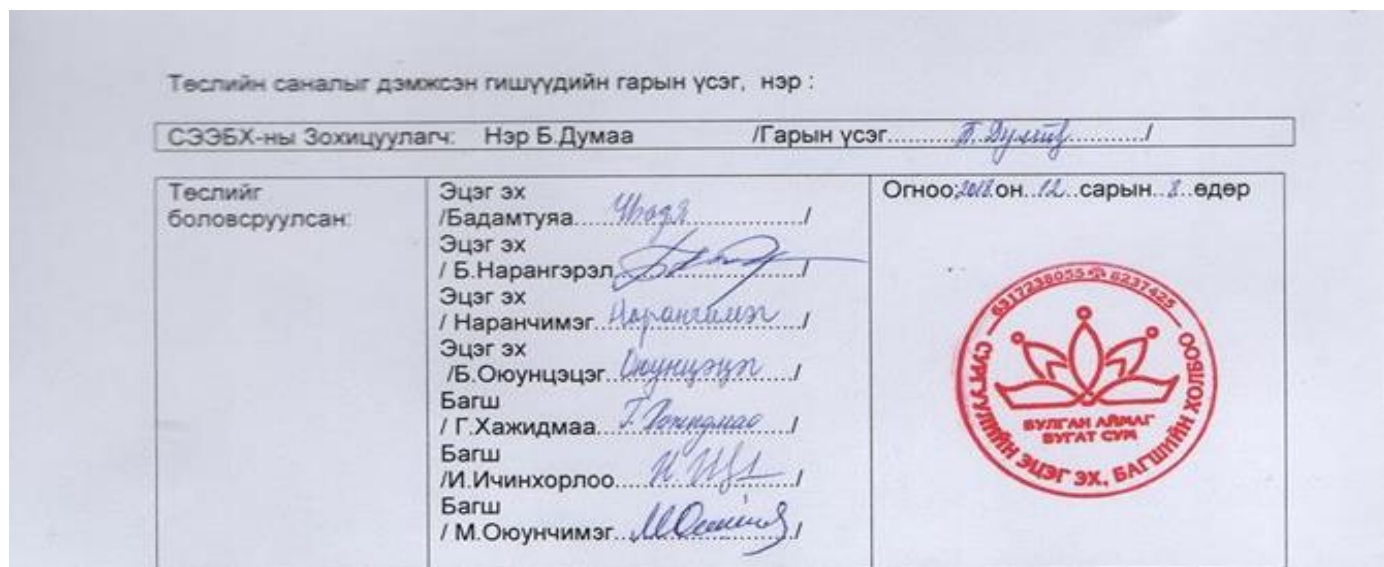 Төслийн саналыг дэмжсэн гишүүдийн гарын үсэг, нэр :
СЭЭБХ-ны Зохицуулагч: Нэр Б.Думаа /Гарын үсэг................../
Төслийг
боловсруулсан:
Эцэг эх
/Бадамтуяа................../
Эцэг эх
/ Б.Нарангэрэл................../
Эцэг эх
/ Наранчимэг..Наранчимэг../
Эцэг эх
/Б.Оюунцэцэг..Оюунцэцэг../
Багш
/ Г.Хажидмаа................../
Багш
/И.Ичинхорлоо................../
Багш
/ М.Оюунчимэг................../
Огноо:2018.он..12..сарын..8..өдөр
6317238055 6237425
СУРГУУЛИЙН ЭЦЭГ ЭХ, БАГШИЙН ХОЛБОО
БУЛГАН АЙМАГ
БУГАТ СУМ